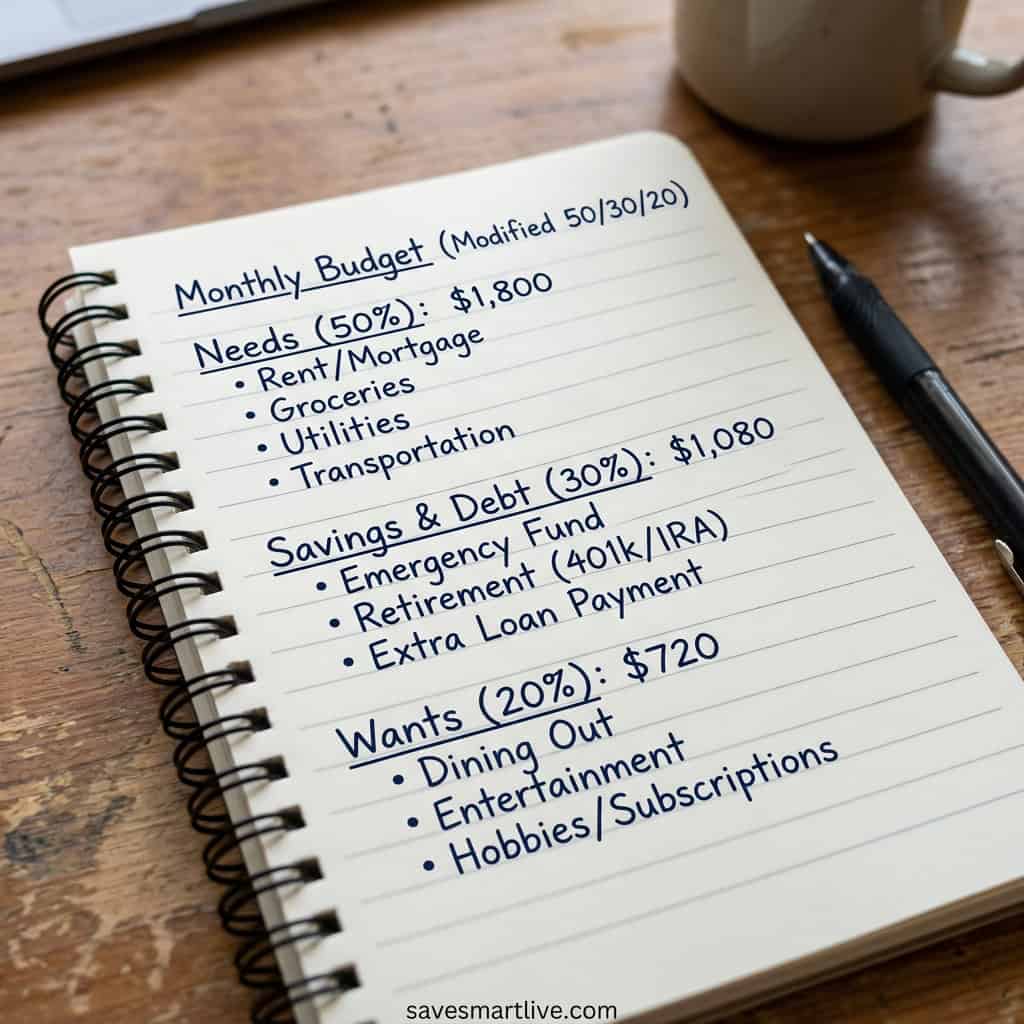 Monthly Budget (Modified 50/30/20)
Needs (50%): $1,800
• Rent/Mortgage
• Groceries
• Utilities
• Transportation
Savings & Debt (30%): $1,080
• Emergency Fund
• Retirement (401k/IRA)
• Extra Loan Payment
Wants (20%): $720
• Dining Out
• Entertainment
• Hobbies/Subscriptions
savesmartlive.com